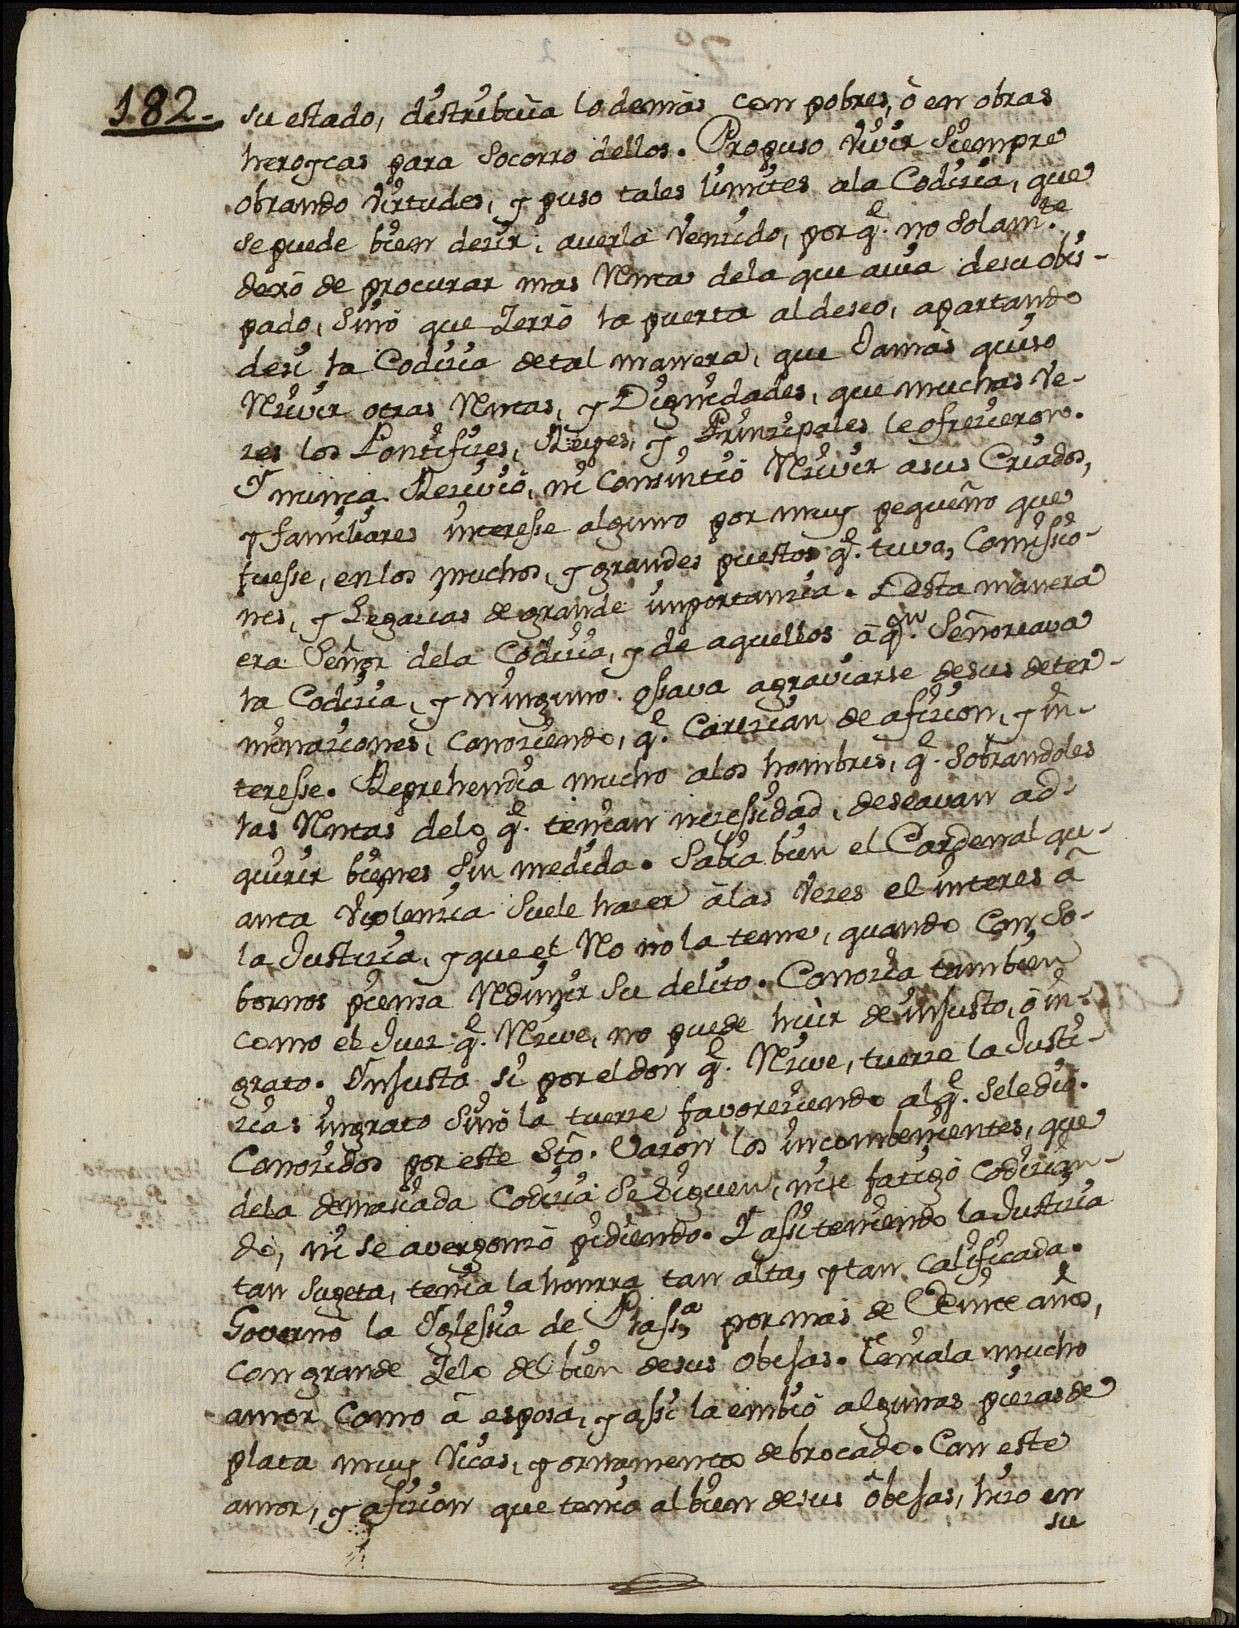 182.
su estado, distribuìa lo demàs con pobres, ò en obras
heroycas para Socorro dellos. Propuso Vivir Siempre
obrando Virtudes, y puso tales limites ala Codizia, que
se puede bien dezir, averla Venzido, porq̃. no Solam.te
dexò de procurar mas Renta dela que avia desu obis-
pado, Sinò que Zerrò la puerta al deseo, apartando
desi la Codizia detal manera, que Jamàs quiso
Rezivir otras Rentas, y Dignidades, que muchas Ve-
zes los Pontifizes, Reyes, y Prinzipales le ofrezieron.
Y nunca Rezivió, ni Consintió Rezivir asus Criados,
y familiares interesse alguno por muy pequeño que
fuesse, enlos muchos, y grandes puestos q̃. tuvo, Comissio-
nes, y Legazias de grande importanzia. Desta manera
era Señor dela Codizia, y de aquellos à q.n Señoreava
la Codizia, y ninguno ossava agraviarse desus deter-
minaziones, conoziendo, q̃. Carezian de afizion, y in-
teresse. Reprehendia mucho alos hombres, q̃. Sobrandoles
las Rentas delo q̃. tenian nezessidad, deseavan ad-
quirir bienes Sin medida. Sabia bien el Cardenal qu-
anta Violenzia Suele hazer à las Vezes el interes à
la Justizia, y que el Reo no la teme, quando Con So-
bornos piensa Redimir Su delito. Conozia tambien
como el Juez q̃. Rezive, no puede huir de injusto, ò in-
grato. Injusto si por el don q̃. Rezive, tuerze la Justi-
zia: ingrato Sinò la tuerze favoreziendo al q̃. Seledio.
Conozidos por este Sto. Varon los incombenientes, que
dela demasiada Codizia Se Siguen, nise fatigò codizian-
do, ni se avergonzò pidiendo. Y assi teniendo la Justizia
tan Sugeta, tenia la honrra tan alta, y tan calificada.
Governò la Yglessia de Plass.a por mas de Veinte años,
con grande Zelo del bien desus Obejas. Teniala mucho
amor como à esposa, y assi la embiò algunas piezas de
plata muy Ricas, y ornamentos de brocado. Con este
amor, y afizion que tenia al bien desus Obejas, hizo en
su